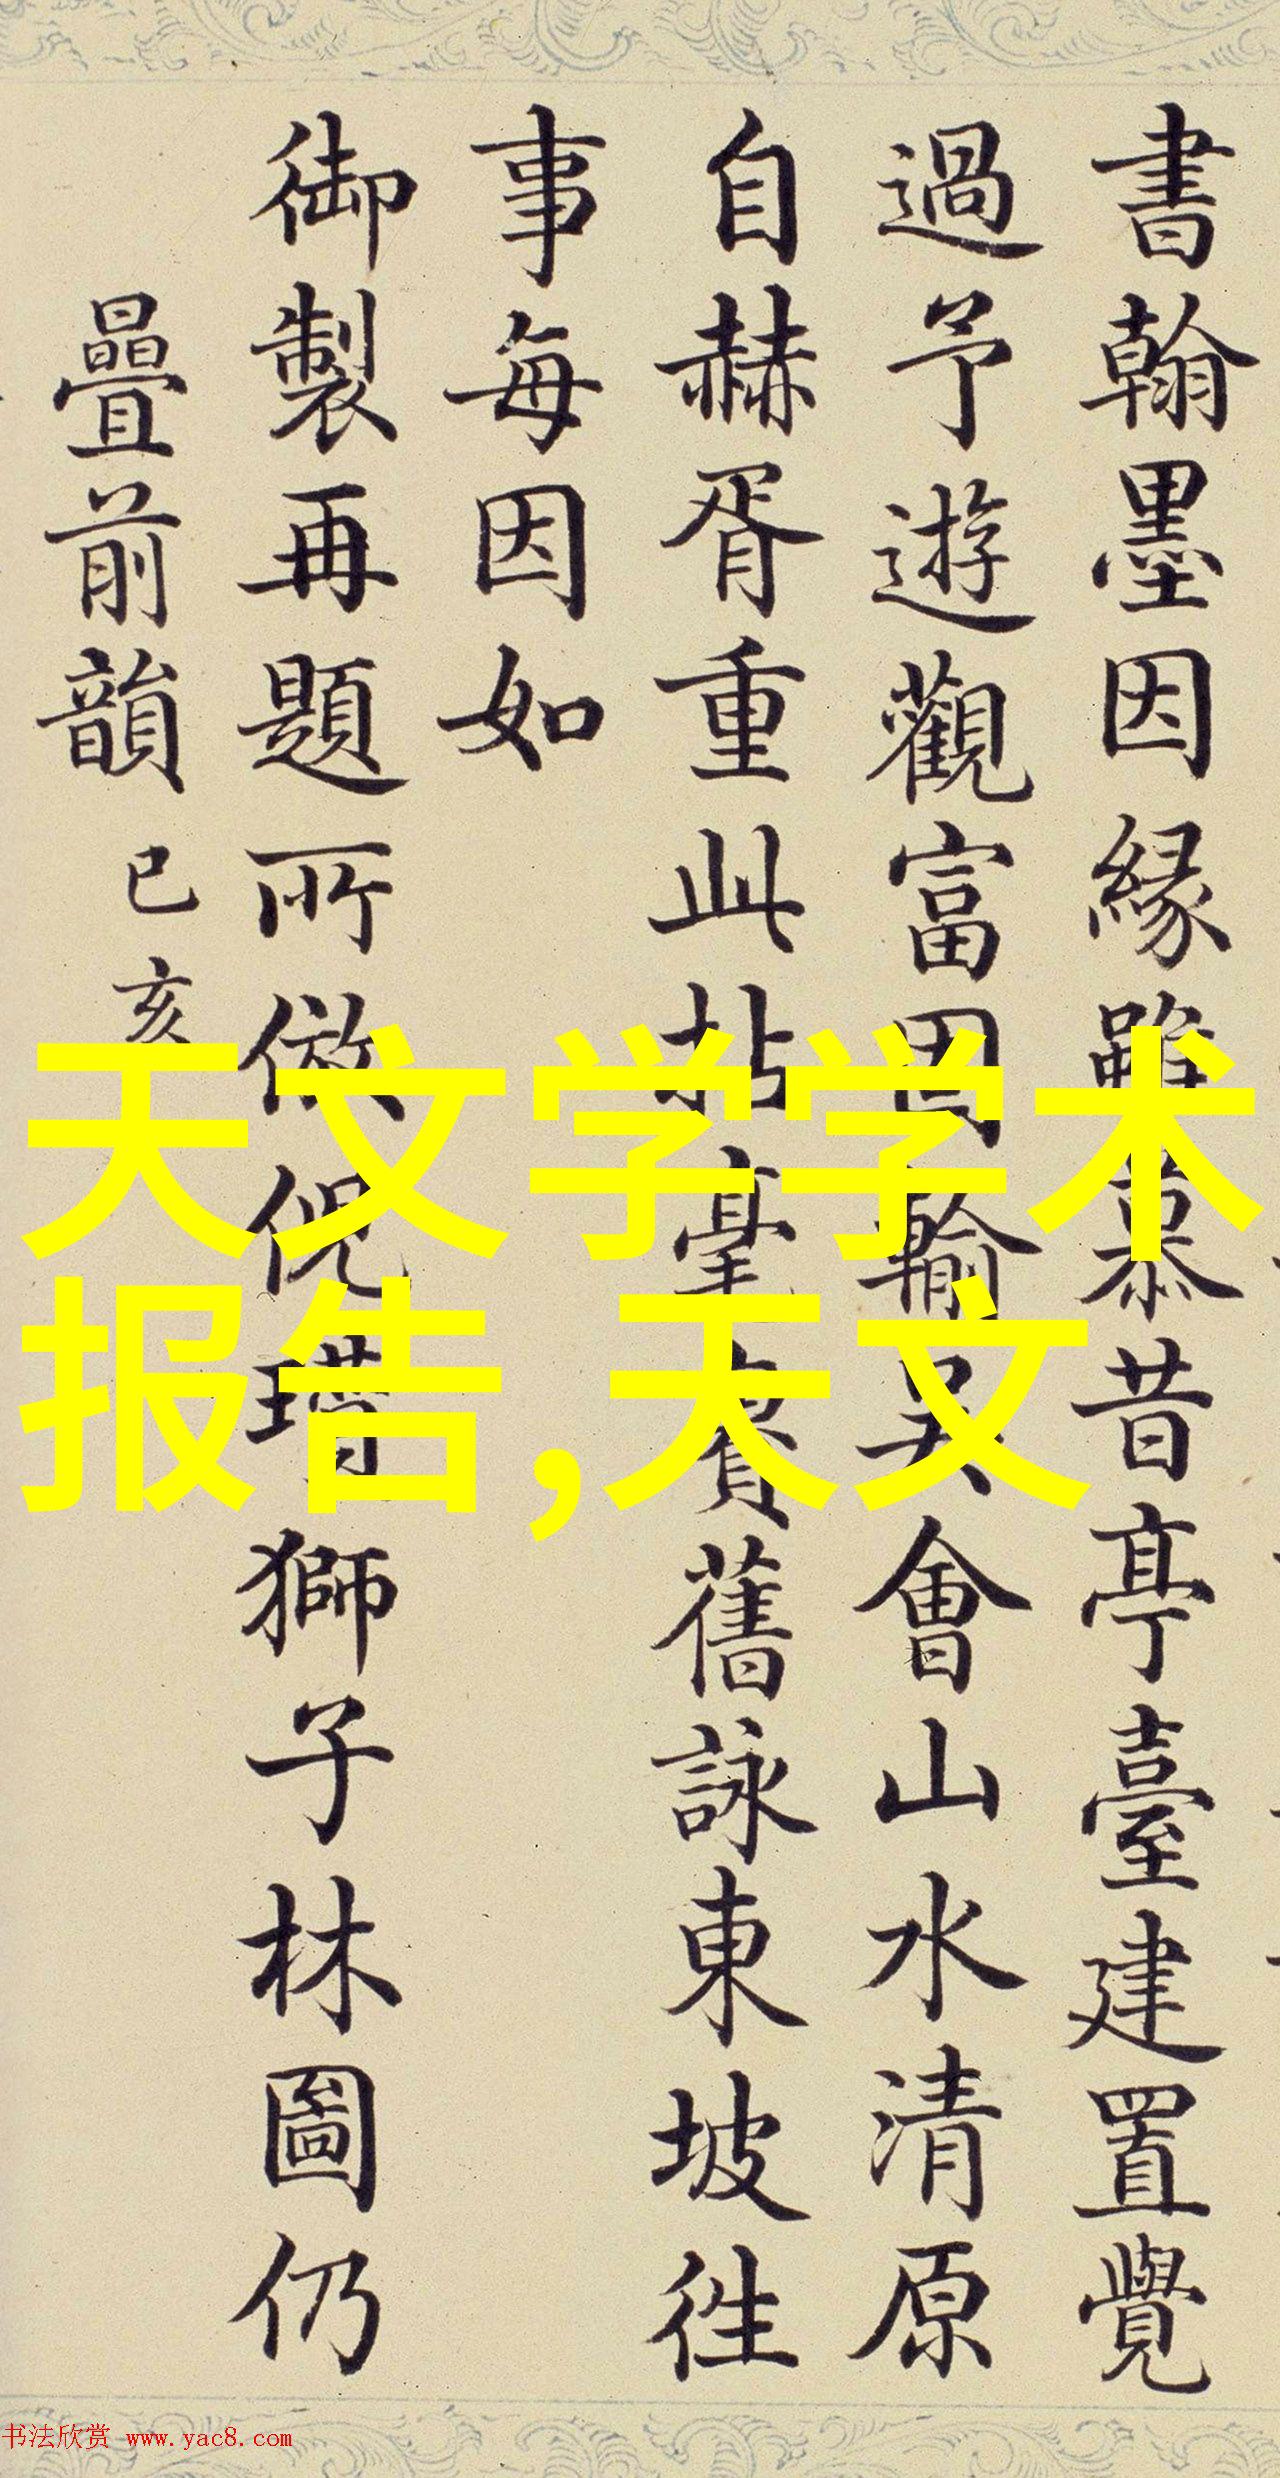 書翰墨因緣雖慕昔亭臺建置覺
過予遊觀富因輸吳會山水清原
自赫胥重此拈毫賡舊詠東坡往
事每因如
御製再題所倣倪瓚獅子林圖仍
疊前韻 己亥
天文学学术
报告,天文
书法欣赏 www.yac8.com